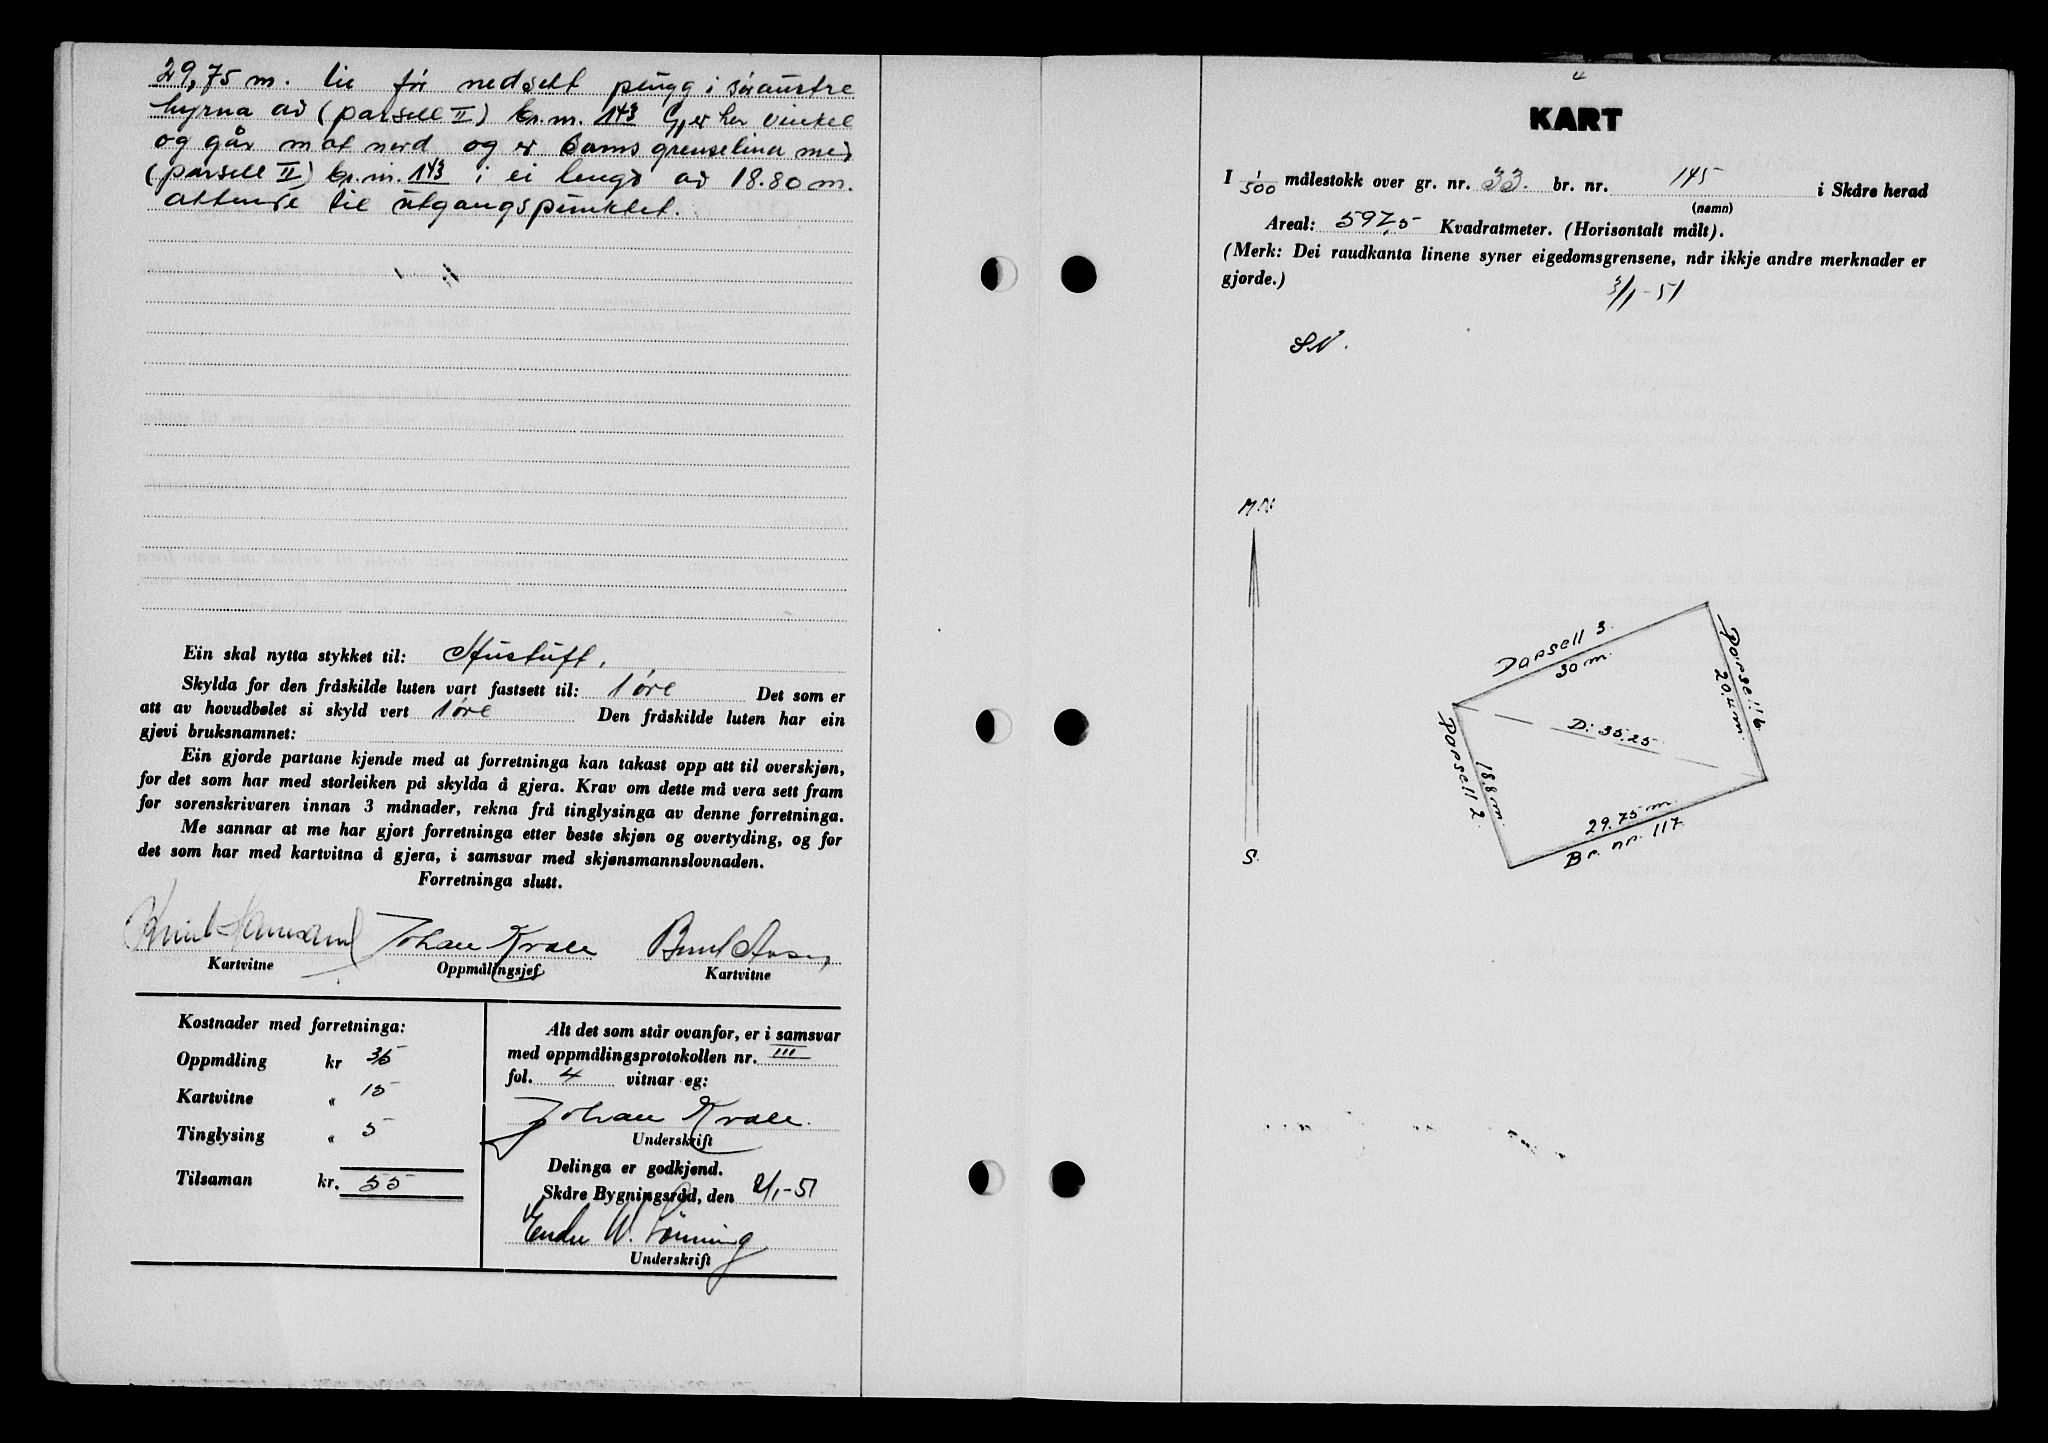 29,75 m. til før nedsett pingg i søraustre
hyrna av (parsell II) br.nr. 143 Gjer her vinkel
og går mot nord og er sams grenselina med
(parsell II) br.nr. 143 i ei lengd av 18.80 m.
attende til utgangspunktet.
Ein skal nytta stykket til: Hustuft.
Skylda for den fråskilde luten vart fastsett til: 1 øre Det som er
att av hovudbølet si skyld vert 1 øre Den fråskilde luten har ein
gjevi bruksnamnet:
Ein gjorde partane kjende med at forretninga kan takast opp att til overskjøn,
for det som har med storleiken på skylda å gjera. Krav om dette må vera sett fram
for sorenskrivaren innan 3 månader, rekna frå tinglysinga av denne forretninga.
Me sannar at me har gjort forretninga etter beste skjøn og overtyding, og for
det som har med kartvitna å gjera, i samsvar med skjønsmannslovnaden.
Forretninga slutt.
Johan Kvale
Kartvitne Oppmålingsjef Kartvitne
Kostnader med forretninga:
Oppmåling kr 35
Kartvitne " 15
Tinglysing " 5
Tilsaman kr. 55
Alt det som står ovanfor, er i samsvar
med oppmålingsprotokollen nr. III
fol. 4 vitnar eg:
Johan Kvale.
Underskrift
Delinga er godkjend.
Skåre Bygningsråd, den 2/1-51
Endre W. Lønning
Underskrift
KART
I 1/500 målestokk over gr. nr. 33. br. nr. 145 i Skåre herad
(namn)
Areal: 597,5 Kvadratmeter. (Horisontalt målt).
(Merk: Dei raudkanta linene syner eigedomsgrensene, når ikkje andre merknader er
gjorde.)
3/1-51
SN.
M N:
S.
Parsell 3.
30 m.
Parsell 6
20.4 m.
D: 35.25
Parsell 2.
18.8 m.
29.75 m.
Br. nr. 117